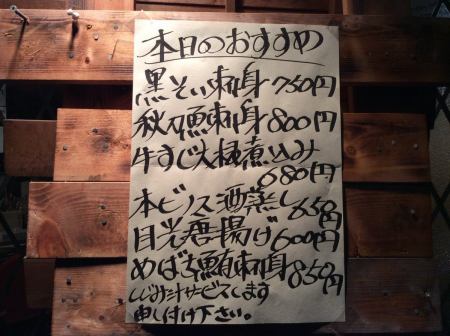 本日のおすすめ
黒そい刺身 750円
秋刀魚刺身 800円
牛すじ大根煮込み
680円
本ビノス酒蒸し 650円
目光唐揚げ 600円
めばち鮪刺身 850円
しじみ汁サービスします
申し付け下さい。